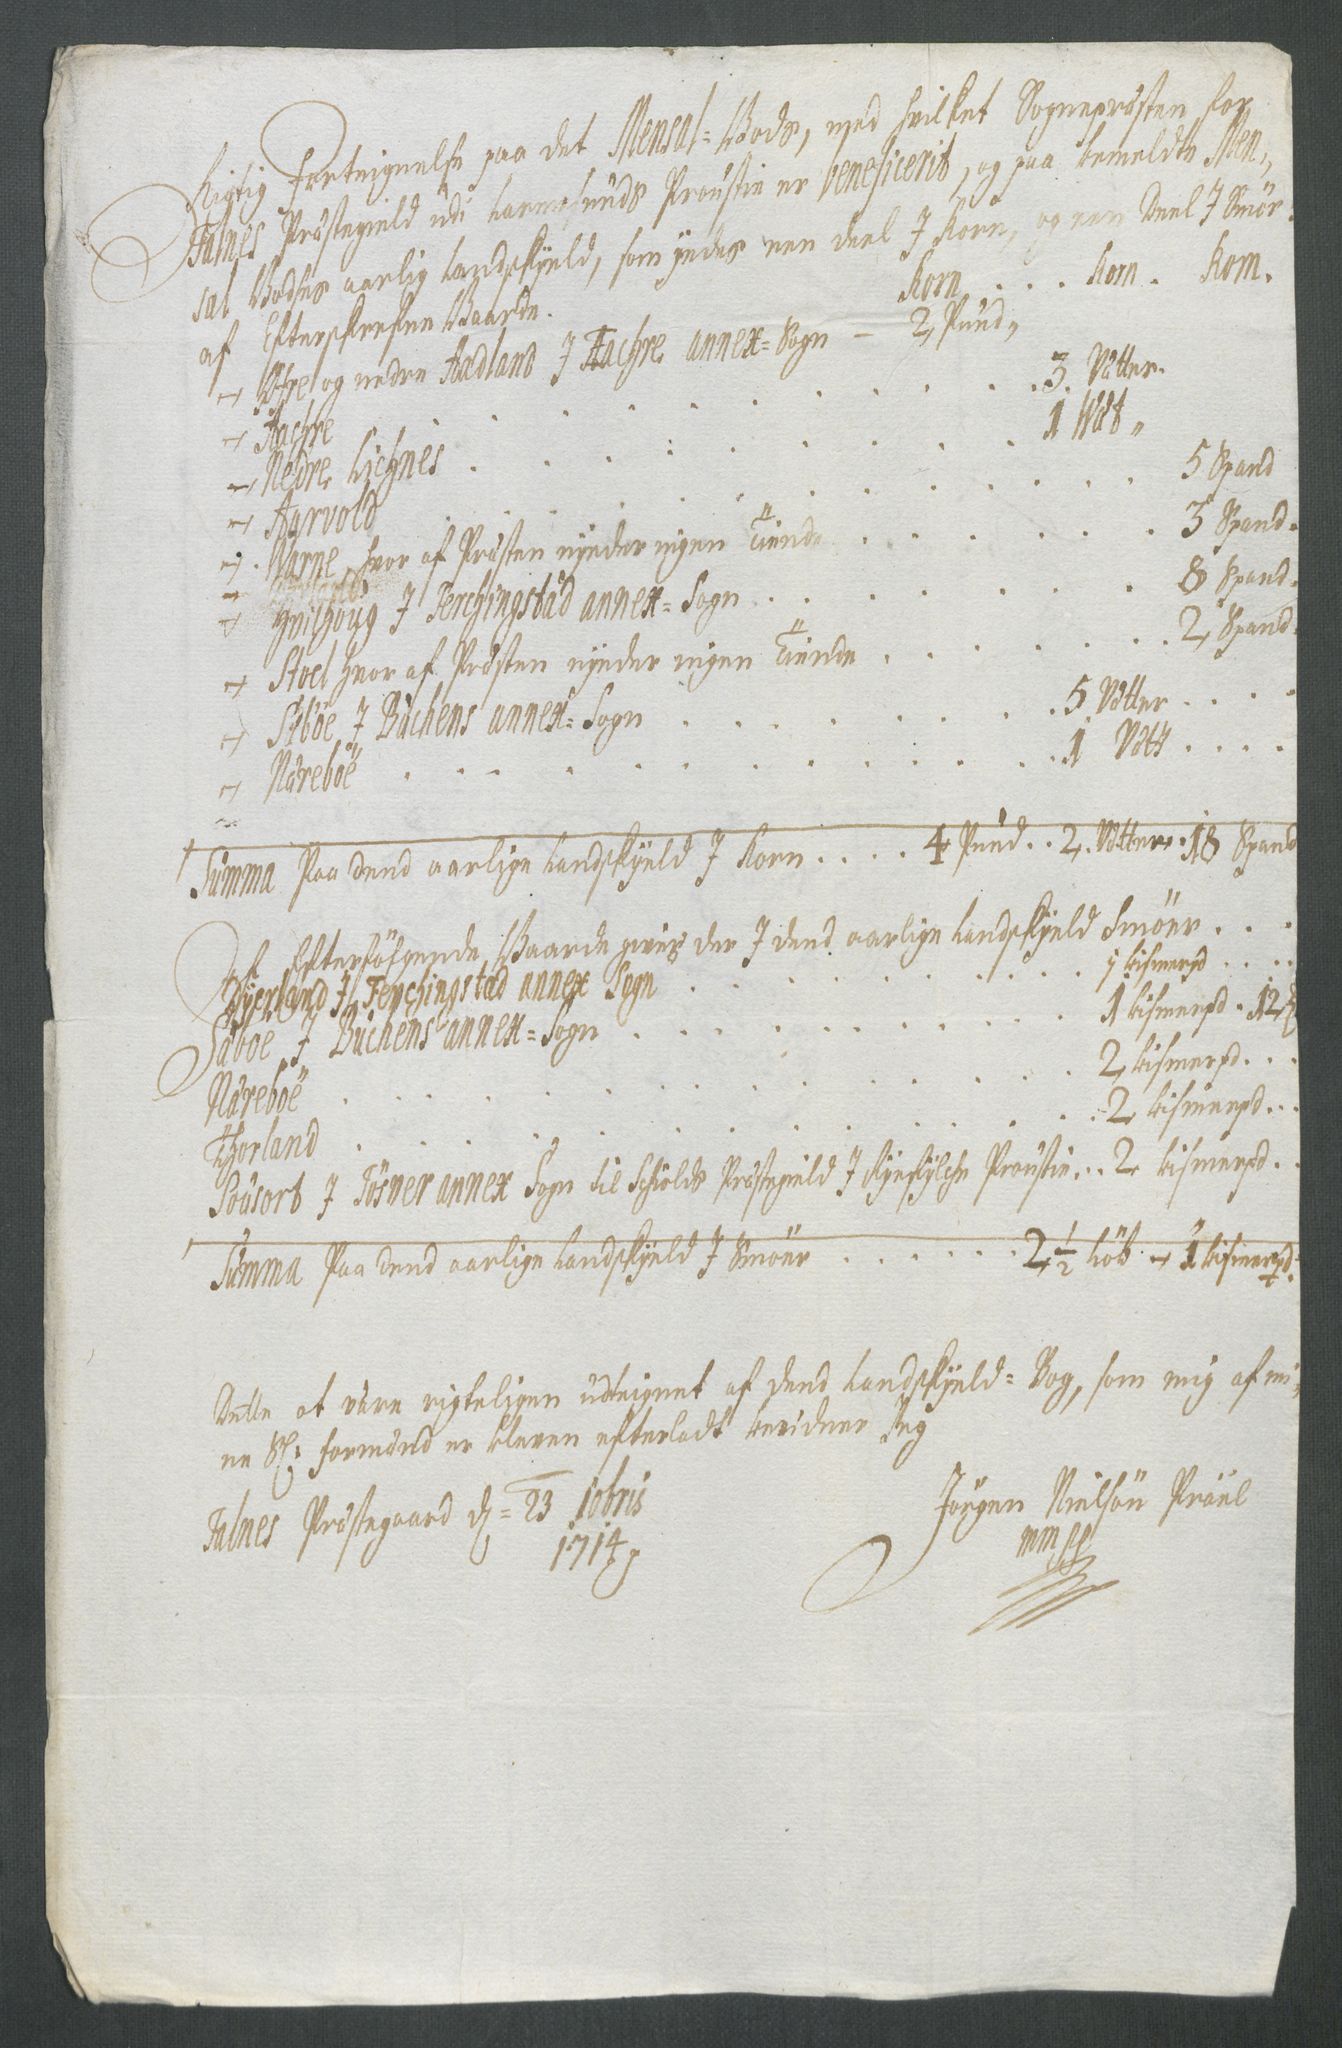 Rigtig forteignelse paa det Mensal-Gods, med hvilket Sognepræsten for
Falnes Præstegield udi Karmesunds Proustie er beneficerit, og paa bemeldte Men„
sal Godses aarlig Landskyeld, som ydes een deel J Korn, og een Deel J Smör
af Efterskrefne Gaarde.
Korn . . . Korn . Korn.
Öfre og nedre Aadland J Aachre annex-Sogn – 2 Pund„
Aachre . . . 3 Vetter.
Nedre Lichnes . . . 1 Wet„
Aarvold . . . 5 Spand
Warne, hvor af Præsten nyeder ingen Tiende . . . 3 Spand.
Hvilhoug J Ferchingstad annex-Sogn . . . 8 Spand.
Stoel hvor af Præsten nyeder ingen Tiende . . . 2 Spand.
Sæböe J Buchens annex-Sogn . . . 5 Vetter . . .
Næreböe . . . 1 Vett . . . .
Summa Paa dend aarlige Landskyeld J Korn . . . . 4 Pund . . 2. Vetter . . 18 Spand
Af Efterfölgende Gaarde gives der J dend aarlige Landskyeld Smöer . . .
Dyerland J Ferchingstad annex Sogn . . . 1 bismerpd . . . .
Sæboe J Buchens annex-Sogn . . . 1 bismerpd . 12
Næreböe . . . 2 bismerpd . . .
Thorland . . . 2 bismerpd . . .
J Tösver annex Sogn til Schiolds Præstegield J Ryefylche Proustie . . 2 bismerpd . .
Summa Paa dend aarlige Landskyeld J Smöer . . . 2 1/2 Löb – 1 bismerpd.
Dette at være rigteligen udteignet af dend Landskyeld-Bog, som mig af mi„
ne Sl: formænd er bleven efterladt bevidner Jeg
Falnes Præstegaard d. 23 10bris
1714
Jörgen Nielsön Präel
mmpp